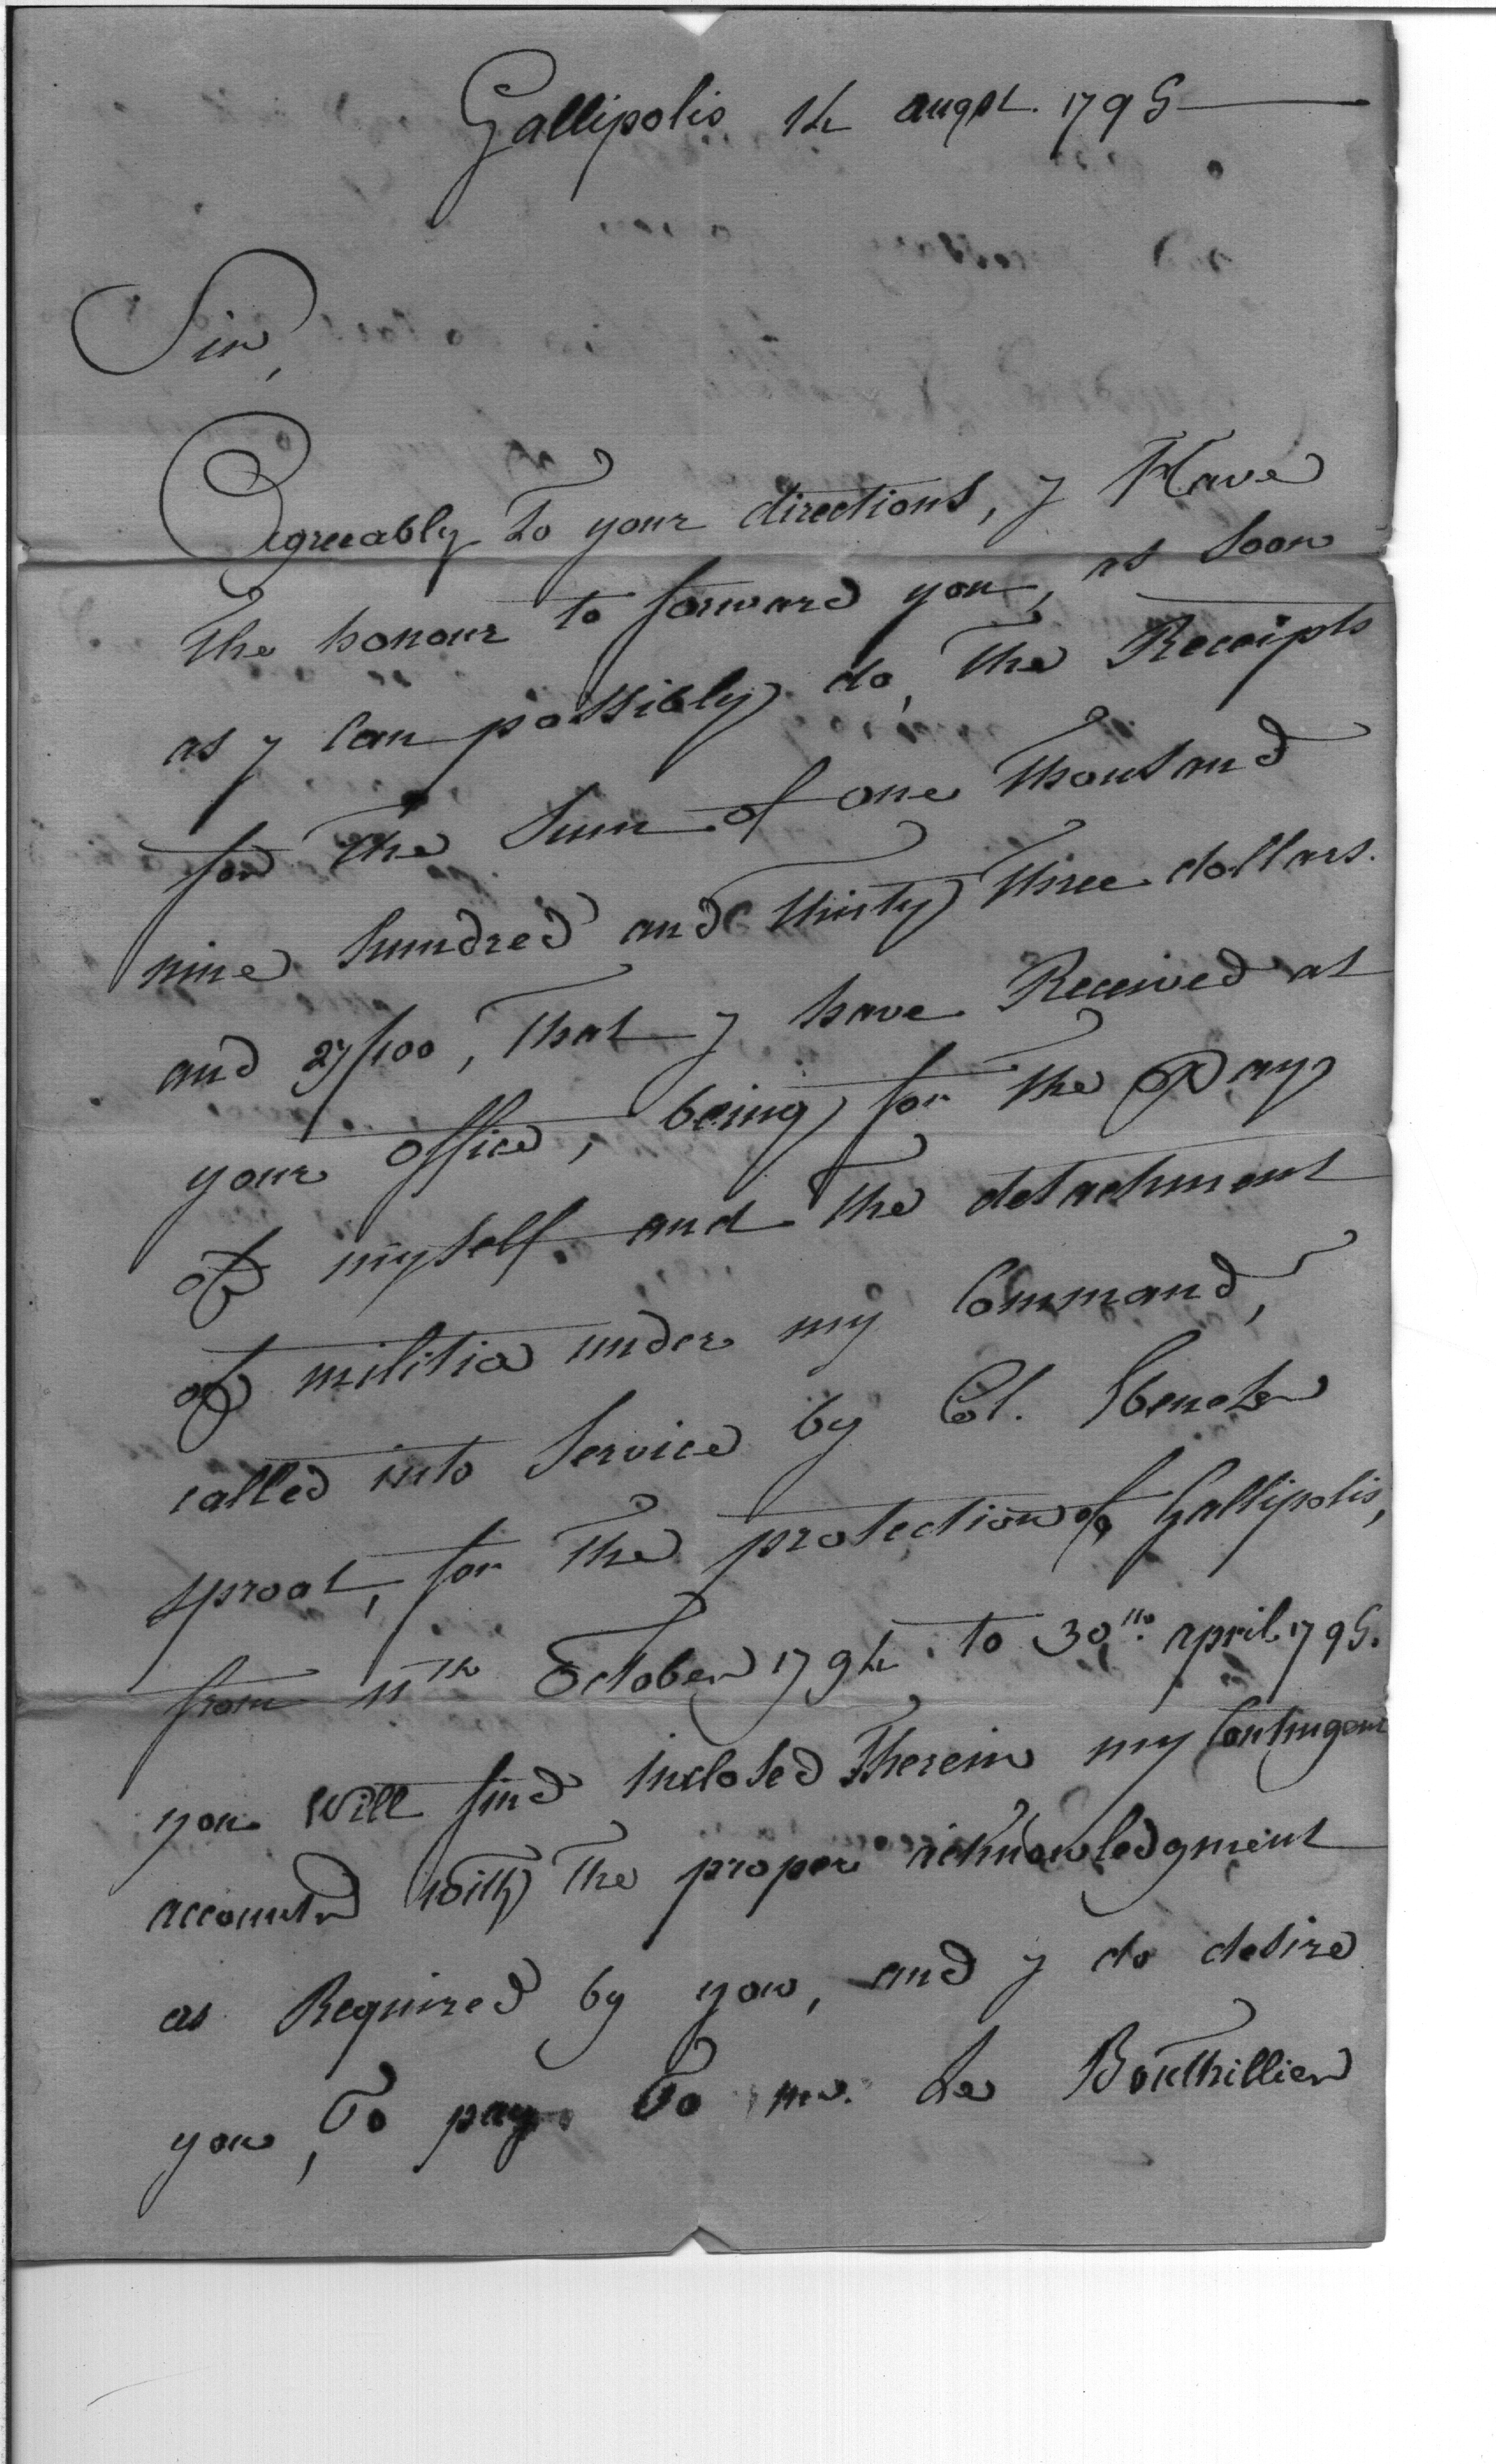 Gallipolis 14 augst. 1795
Sir,
Agreeably to your directions, y Have
The honour to forward you, as soon
as y Can possibly do, The Receipts
for The Sum of one Thousand
nine hundred and thirty Three dollars.
and 27/100, That y have Received at
your office, being for The pay
of myself and The detachment
of militia under my Command,
called into Service by Col. Ebenezer
sproat, for The protection of Gallipolis,
from 11th October 1794. to 30th. april 1795.
you Will find inclosed Therein my Contingent
accounts with The proper acknowledgment
as Required by you, and y do desire
you, To pay To mr. Le Bouthillier